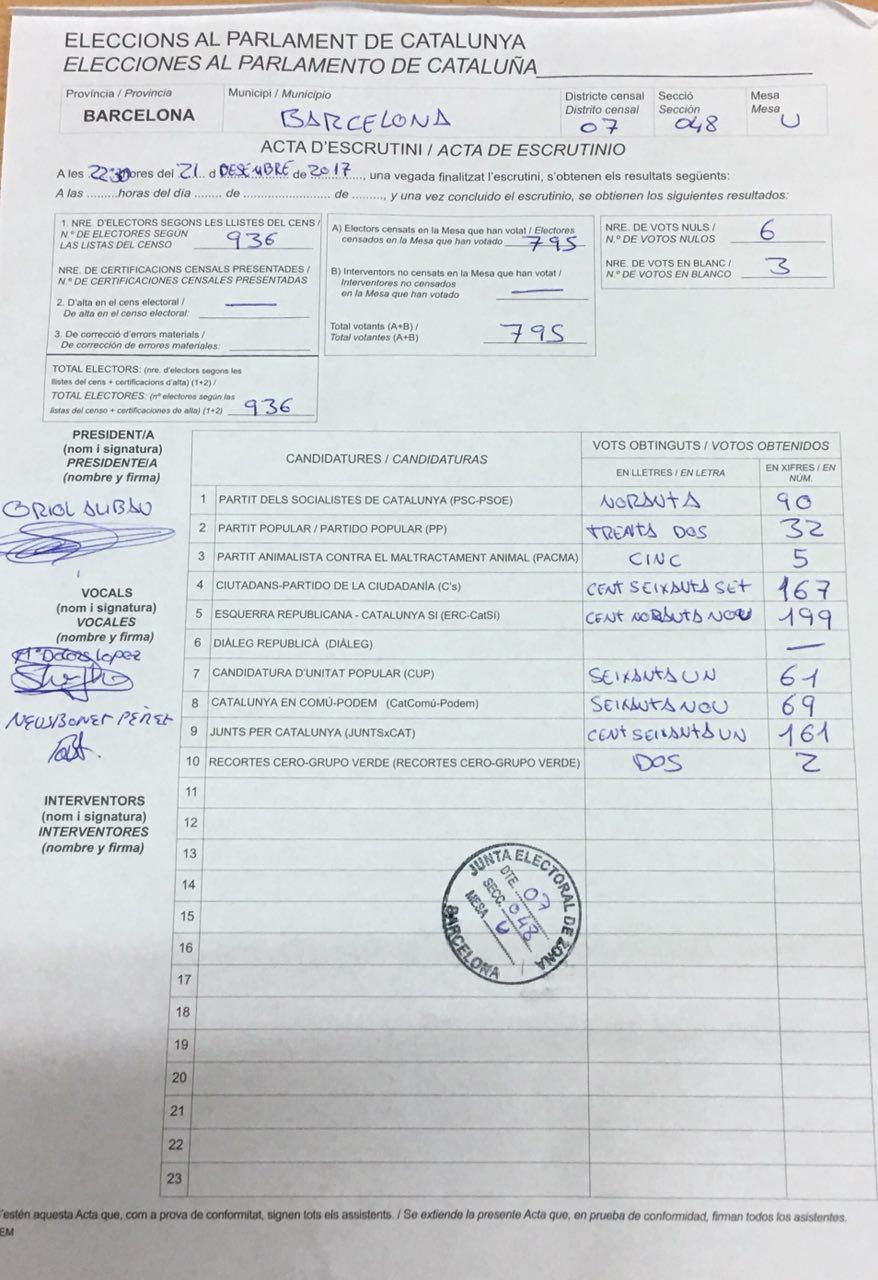 ELECCIONS AL PARLAMENT DE CATALUNYA
ELECCIONES AL PARLAMENTO DE CATALUÑA
Província / Provincia
BARCELONA
Municipi / Municipio
BARCELONA
Districte censal
Distrito censal
07
Secció
Sección
048
Mesa
Mesa
U
ACTA D'ESCRUTINI / ACTA DE ESCRUTINIO
A les 22:30 hores del 21 d DESEMBRE de 2017, una vegada finalitzat l'escrutini, s'obtenen els resultats següents:
A las ......... horas del día ....... de ........................ de ........., y una vez concluido el escrutinio, se obtienen los siguientes resultados:
1. NRE. D'ELECTORS SEGONS LES LLISTES DEL CENS /
N.º DE ELECTORES SEGÚN
LAS LISTAS DEL CENSO 936
NRE. DE CERTIFICACIONS CENSALS PRESENTADES /
N.º DE CERTIFICACIONES CENSALES PRESENTADAS
2. D'alta en el cens electoral / —
De alta en el censo electoral:
3. De correcció d'errors materials /
De corrección de errores materiales:
TOTAL ELECTORS: (nre. d'electors segons les
llistes del cens + certificacions d'alta) (1+2) /
TOTAL ELECTORES: (nº electores según las
listas del censo + certificaciones de alta) (1+2) 936
A) Electors censats en la Mesa que han votat / Electores
censados en la Mesa que han votado 795
B) Interventors no censats en la Mesa que han votat /
Interventores no censados
en la Mesa que han votado —
Total votants (A+B) /
Total votantes (A+B) 795
NRE. DE VOTS NULS /
N.º DE VOTOS NULOS 6
NRE. DE VOTS EN BLANC /
N.º DE VOTOS EN BLANCO 3
PRESIDENT/A
(nom i signatura)
PRESIDENTE/A
(nombre y firma)
ORIOL
VOCALS
(nom i signatura)
VOCALES
(nombre y firma)
Mª Dolors Lopez
NEUS BONET
INTERVENTORS
(nom i signatura)
INTERVENTORES
(nombre y firma)
CANDIDATURES / CANDIDATURAS
VOTS OBTINGUTS / VOTOS OBTENIDOS
EN LLETRES / EN LETRA
EN XIFRES / EN
NÚM.
1 PARTIT DELS SOCIALISTES DE CATALUNYA (PSC-PSOE) NORANTA 90
2 PARTIT POPULAR / PARTIDO POPULAR (PP) TRENTA DOS 32
3 PARTIT ANIMALISTA CONTRA EL MALTRACTAMENT ANIMAL (PACMA) CINC 5
4 CIUTADANS-PARTIDO DE LA CIUDADANÍA (C's) CENT SEIXANTA SET 167
5 ESQUERRA REPUBLICANA - CATALUNYA SI (ERC-CatSí) CENT NORANTA NOU 199
6 DIÀLEG REPUBLICÀ (DIÀLEG) —
7 CANDIDATURA D'UNITAT POPULAR (CUP) SEIXANTA UN 61
8 CATALUNYA EN COMÚ-PODEM (CatComú-Podem) SEIXANTA NOU 69
9 JUNTS PER CATALUNYA (JUNTSxCAT) CENT SEIXANTA UN 161
10 RECORTES CERO-GRUPO VERDE (RECORTES CERO-GRUPO VERDE) DOS 2
11
12
13
14
15
16
17
18
19
20
21
22
23
JUNTA ELECTORAL DE ZONA
BARCELONA
DTE. 07
SECC. 048
MESA U
S'estén aquesta Acta que, com a prova de conformitat, signen tots els assistents. / Se extiende la presente Acta que, en prueba de conformidad, firman todos los asistentes.